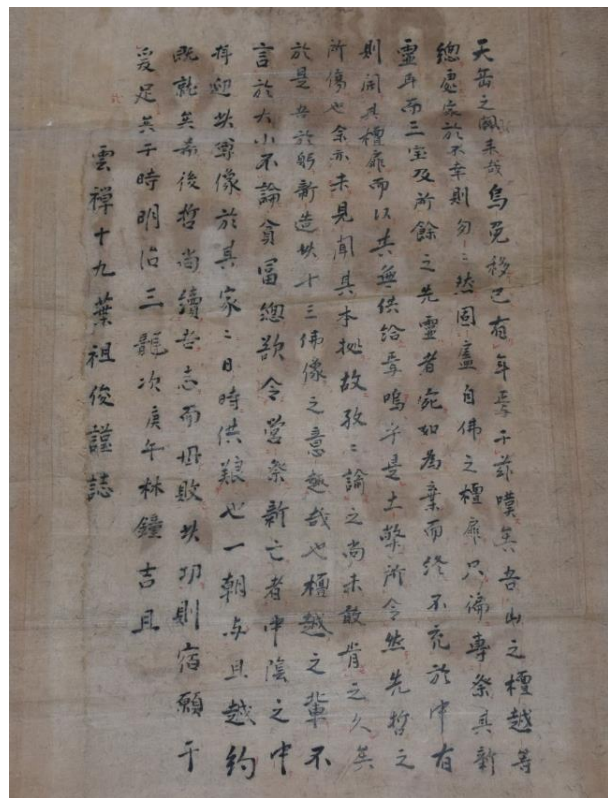 天岳之風来哉烏兔移已有年焉于茲嘆矣吾山之檀越等
總處家於不幸則匆〻然固盧自佛之檀扉只偏專祭其新
霊再而三宝及所餘之先霊者宛如為棄而終不充於中有
則闭其檀扉而以去無供給焉嗚乎是土弊所令然先哲之
所傷也余亦未見闻其本拠故孜〻論之尚未敢肯之久矣
於是吾於躬新造此十三佛像之意趣哉也檀越之輩不
言於大小不論貪冨總欲令営祭新亡者中陰之中
拝迎此尊像於其家〻日時供粮也一朝与旦越約
既就矣希後哲尚續吾志而毋敗此功則宿願于
爰足矣于時明治三龍次庚午林鐘吉旦
雲禅十九葉祖俊謹誌